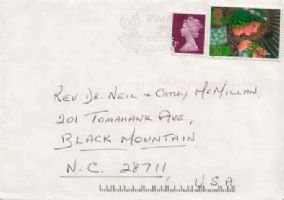 REV. DR. NEIL & CATHY MCMILLAN
201 TOMAHANK AVE,
BLACK MOUNTAIN
N.C. 28711,
U.S.A.